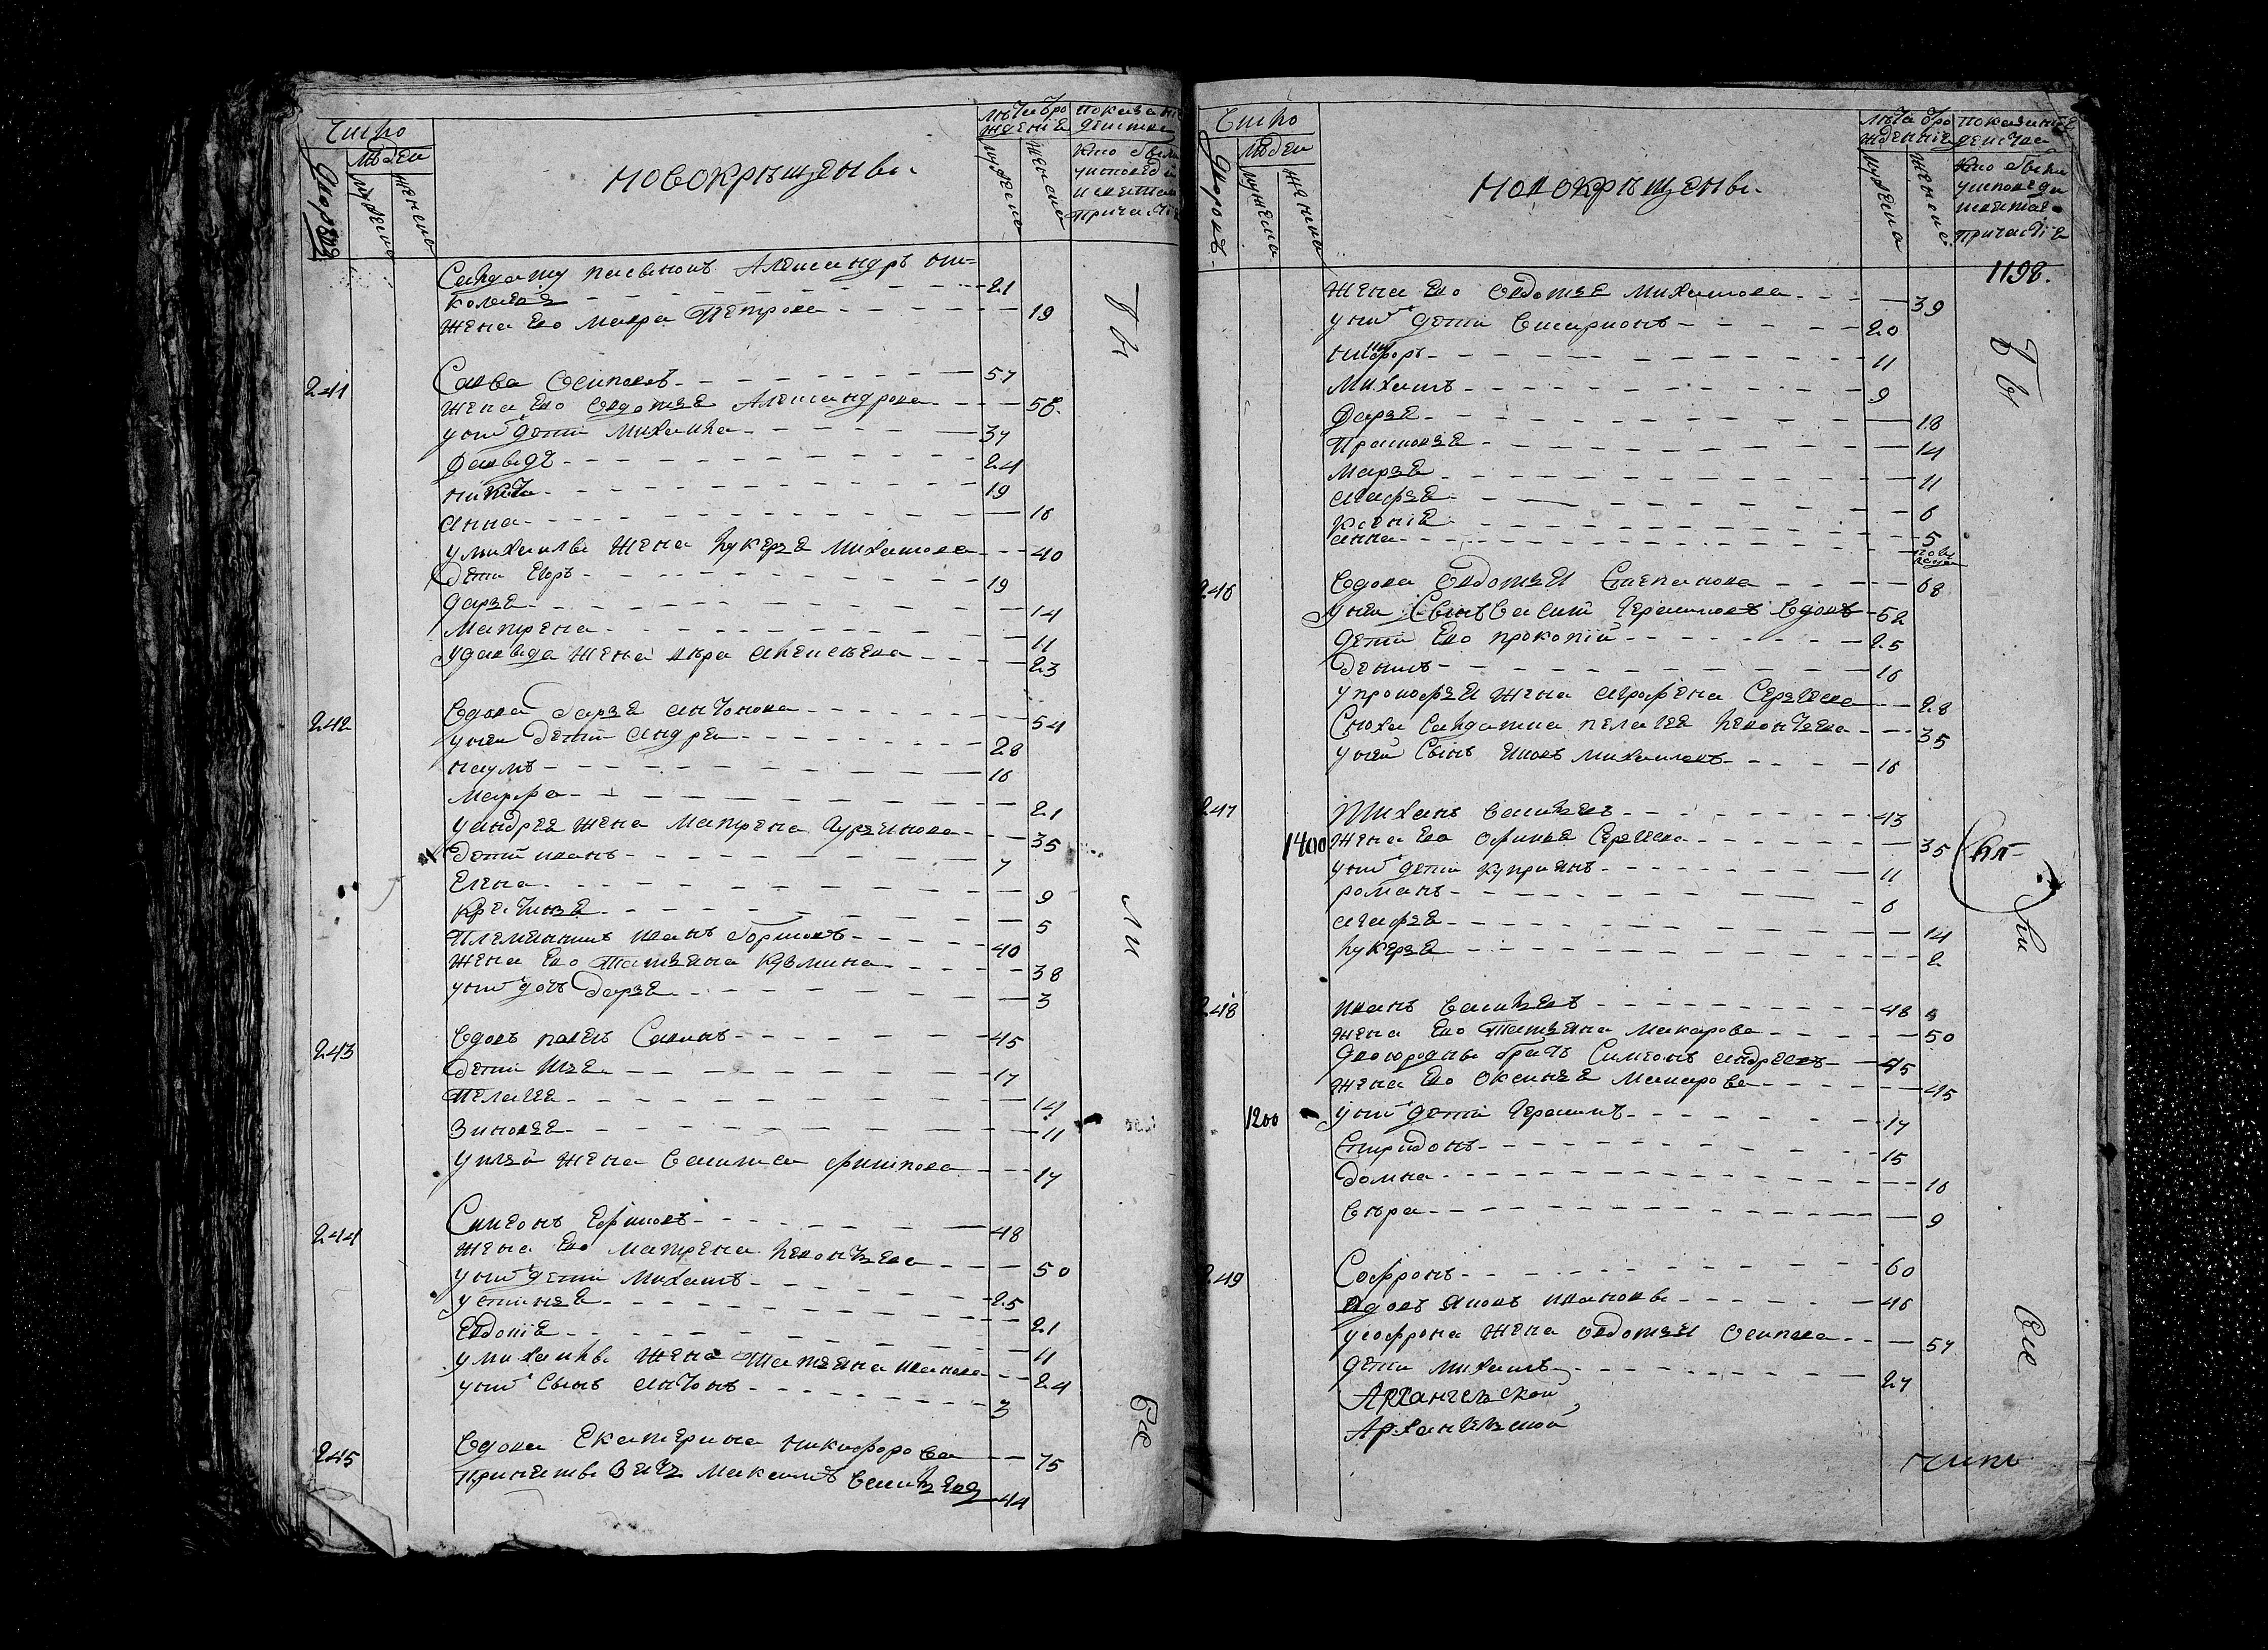 Число
Дворовъ
Людей
Мужеска
Женска
новокрѣщены
лѣта ѿро
ждения
мужеска
женска
показание
действа
кто были
у исповеди
и святаго
причастия
Салдатцу пасынокъ Александръ ни-
колаевъ 21
жена ево Мавра Петрова 19
241 Савва Осиповъ 57
жена ево Овдотья Александрова 58
у них дети Михаила 37
Давыдъ 24
никита 19
анна 16
у михаилы жена лукерья михаилова 40
дети Егоръ 19
дарья 14
матрена 11
у давыда жена вера алексеева 23
242 вдова дарья антонова 54
у неи дети андреи 28
наумъ 16
марфа 21
у андрея жена матрена гурьянова 35
дети иванъ 7
Елена 9
5
племянникъ иванъ 40
жена ево татьяна кузмина 38
у них дочь дарья 3
243 вдовъ павелъ Савинъ 45
дети илья 17
пелагея 14
зиновья 11
у ильи жена василиса филипова 17
244 Симеонъ Ефимовъ 48
жена ево матрена леонтьева 50
у них дети михаилъ 25
устинья 21
Евдокия 11
у михаилы жена татьяна иванова 24
у них сынъ антонъ 3
245 вдова Екатерина никифорова 75
приняты зять максимъ васильевъ 44
бы
ли
все
Число
Дворовъ
Людей
Мужеска
Женска
новокрѣщены
лѣта ѿро
ждения
мужеска
женска
показание
действа
кто были
у исповеди
и святаго
причастия
1198.
жена ево Овдотья михаилова 39
у них дети виссарионъ 20
никифоръ 11
михаилъ 9
Дарья 18
Прасковья 14
марья 11
агафья 6
ксения 5
анна полу
года
246 вдова Овдотья Степанова 68
у неи сынъ василий герасимовъ вдовъ 52
дети ево прокопий 25
денисъ 16
у прокофья жена аграфена Сергеева 28
сноха салдатка пелагея леонтьева 35
у неи сынъ яковъ михаиловъ 16
247 Тиханъ васильевъ 43
1400 жена ево офимья Сергеева 35
у них дети куприянъ 11
романъ 6
агафья 14
лукерья 2
248 иванъ васильевъ 48
жена ево татьяна макарова 50
двоюродны братъ Симеонъ андреевъ 45
жена ево Оксинья макарова 45
1200 у них дети герасимъ 17
Спиридонъ 15
домна 16
вера 9
249 Софронъ 60
вдовъ яковъ ивановы 46
у софрона жена овдотья осипова 57
дети михаилъ 27
Архангельской
Архангельской
бы
ли
все
число